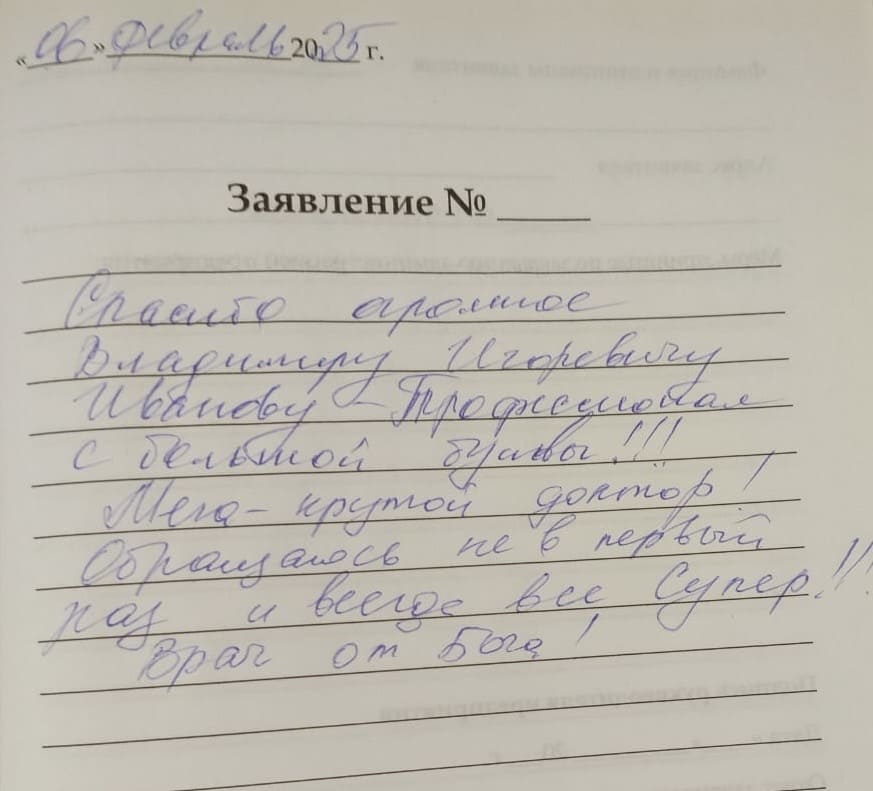 «06» Февраль 2025 г.
Заявление № _____
Спасибо огромное
Владимиру Игоревичу
Иванову – Профессионал
с большой буквы!!!
Мега-крутой доктор!
Обращаюсь не в первый
раз и всегда все Супер!!!
Врач от Бога!